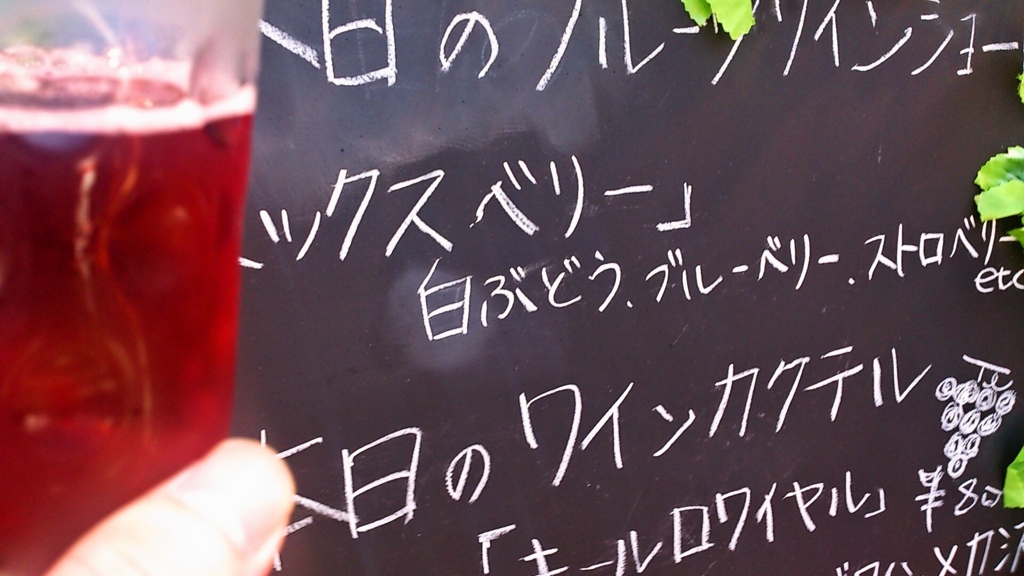 日のフルーツワインショー
ックスベリー」
白ぶどう、ブルーベリー、ストロベリー
etc
日のワインカクテル
「キールロワイヤル」 ¥80